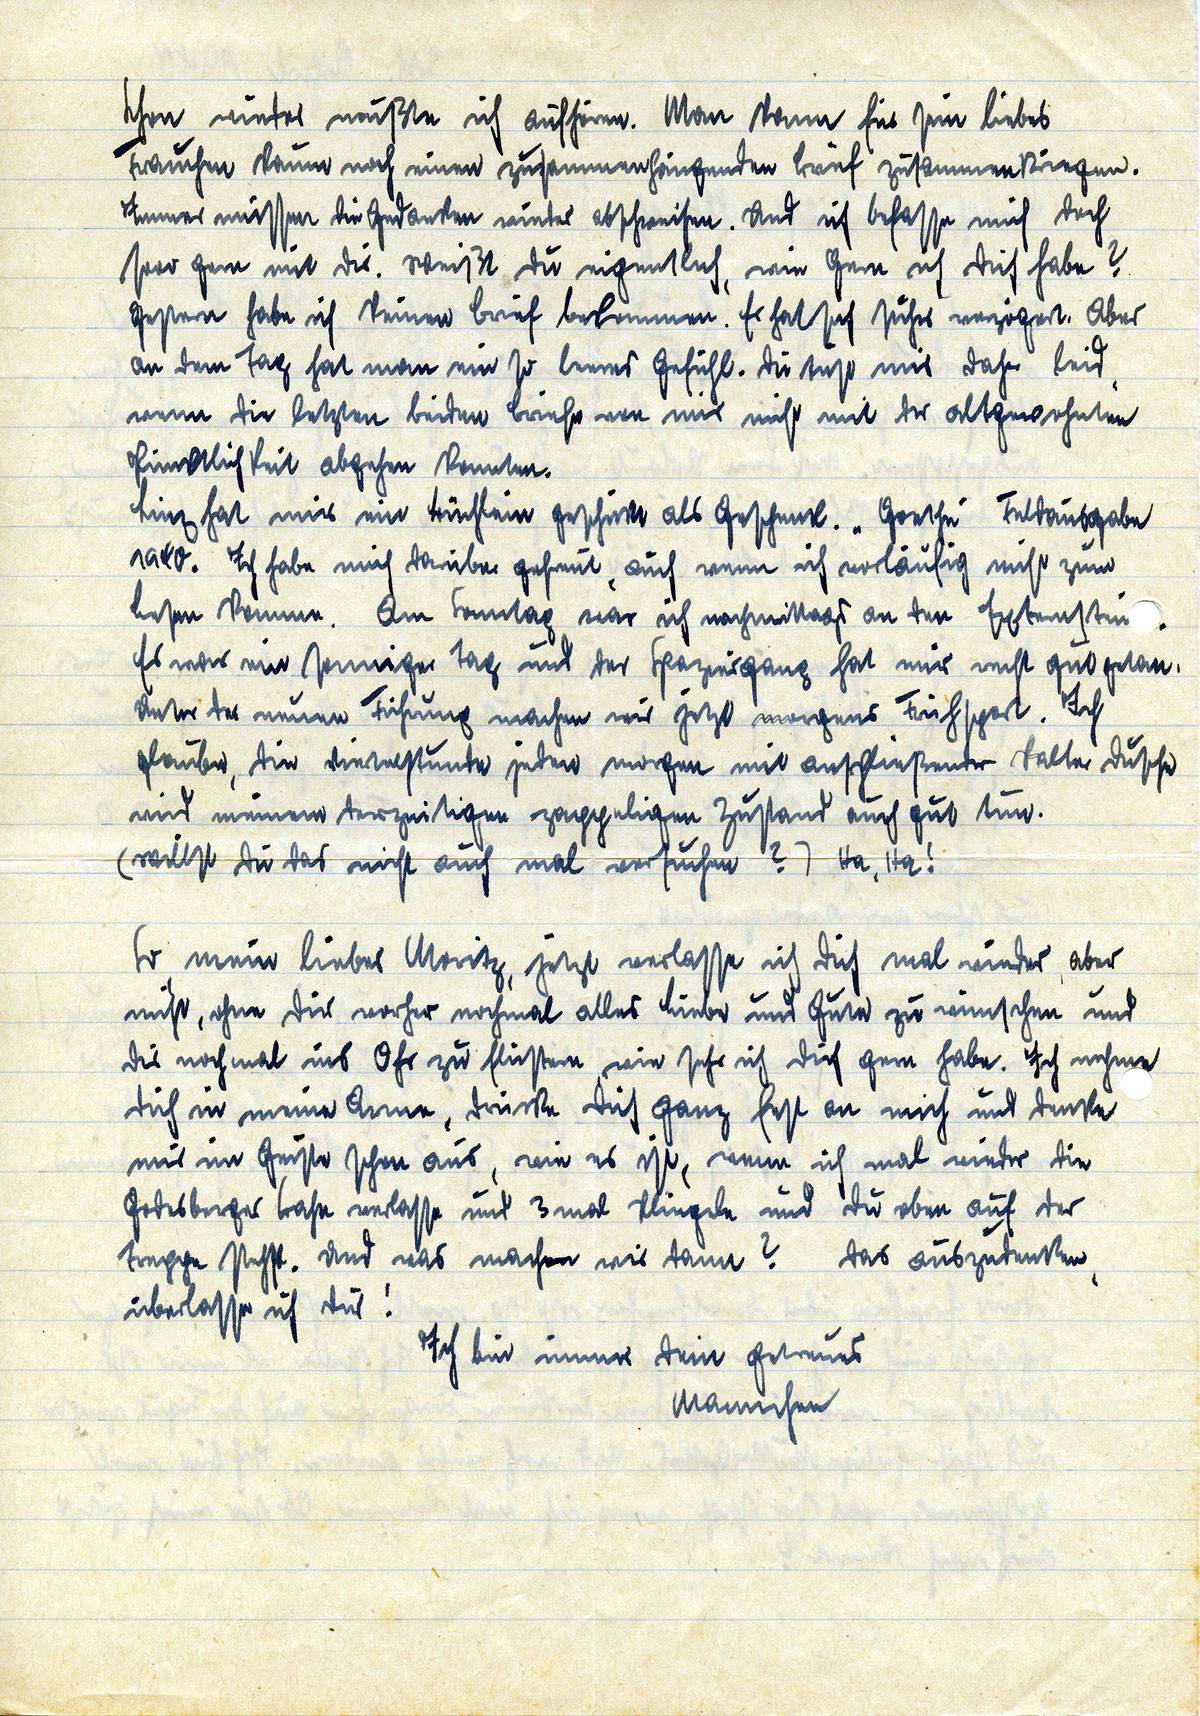 Schon wieder mußte ich aufhören. Man kann für sein liebes
Frauchen kaum noch einen zusammenhängenden Brief zusammenkriegen.
Immer müssen die Gedanken wieder abschweifen. Und ich befasse mich doch
sooo gern mit dir. Weißt Du eigentlich, wie Gern ich Dich habe?
Gestern habe ich keinen Brief bekommen. Er hat sich sicher verzögert. Aber
an dem Tag hat man ein so leeres Gefühl. Du tust mir daher leid,
wenn die letzten beiden Briefe von mir nicht mit der altgewohnten
Pünktlichkeit abgehen konnten.
hat mir ein Büchlein geschickt als Geschenk. „Goethe" Feldausgabe
1940. Ich habe mich darüber gefreut, auch wenn ich vorläufig nicht zum
lesen komme. Am Sonntag war ich nachmittags an den Externstein .
Es war ein sonniger Tag und der Spaziergang hat mir recht gut getan.
Unter der neuen Führung machen wir jetzt morgens Frühsport. Ich
glaube, die Viertelstunde jeden morgen mit anschließender kalter Dusche
wird meinem derzeitigen zappeligen Zustand auch gut tun.
(Willst Du das nicht auch mal versuchen?) Ha, Ha!
So mein lieber Moritz, jetzt verlasse ich Dich mal wieder, aber
nicht, ohne Dir vorher nochmal alles Liebe und Gute zu wünschen und
dir nochmal ins Ohr zu flüstern, wie sehr ich Dich gern habe. Ich nehme
Dich in meine Arme, drücke Dich ganz fest an mich und denke
mir im Geiste schon aus, wie es ist, wenn ich mal wieder die
Godesberger Bahn verlasse und 3 mal klingele und Du oben auf der
Treppe stehst. Und was machen wir dann? Das auszudenken,
überlasse ich dir!
Ich bin immer dein getreues
Mannchen